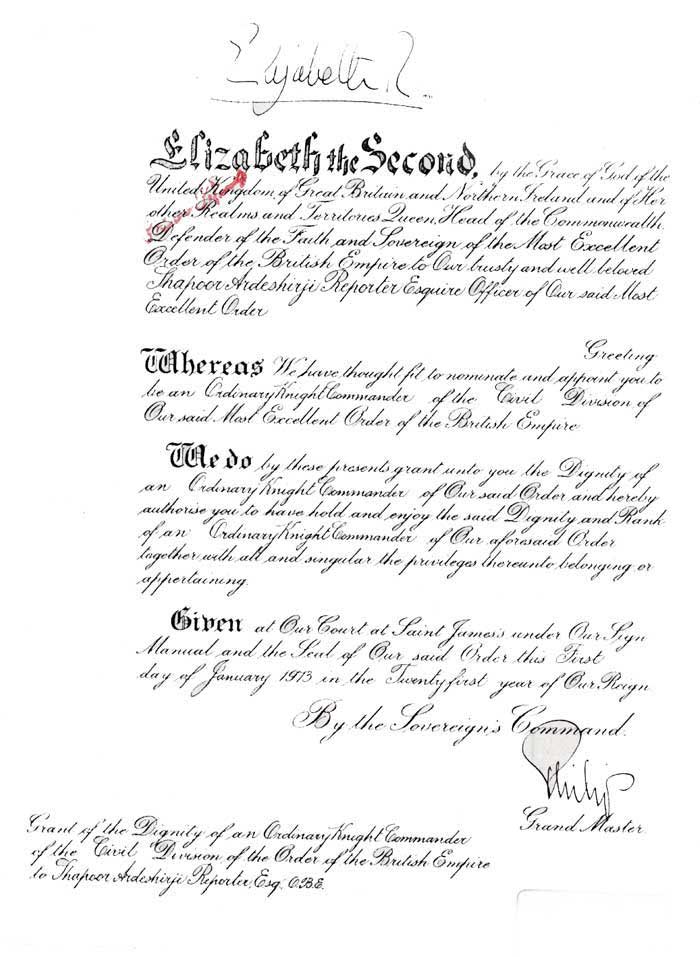 Elizabeth R
Elizabeth the Second, by the Grace of God of the
United Kingdom of Great Britain and Northern Ireland and of Her
other Realms and Territories Queen, Head of the Commonwealth,
Defender of the Faith and Sovereign of the Most Excellent
Order of the British Empire to Our trusty and well beloved
Shapoor Ardeshirji Reporter Esquire Officer of Our said Most
Excellent Order
Greeting
Whereas We have thought fit to nominate and appoint you to
be an Ordinary Knight Commander of the Civil Division of
Our said Most Excellent Order of the British Empire
We do by these presents grant unto you the Dignity of
an Ordinary Knight Commander of Our said Order and hereby
authorise you to have hold and enjoy the said Dignity and Rank
of an Ordinary Knight Commander of Our aforesaid Order
together with all and singular the privileges thereunto belonging or
appertaining.
Given at Our Court at Saint James's under Our Sign
Manual and the Seal of Our said Order this First
day of January 1973 in the Twenty first year of Our Reign
By the Sovereign's Command.
Philip
Grand Master
Grant of the Dignity of an Ordinary Knight Commander
of the Civil Division of the Order of the British Empire
to Shapoor Ardeshirji Reporter, Esq. O.B.E.